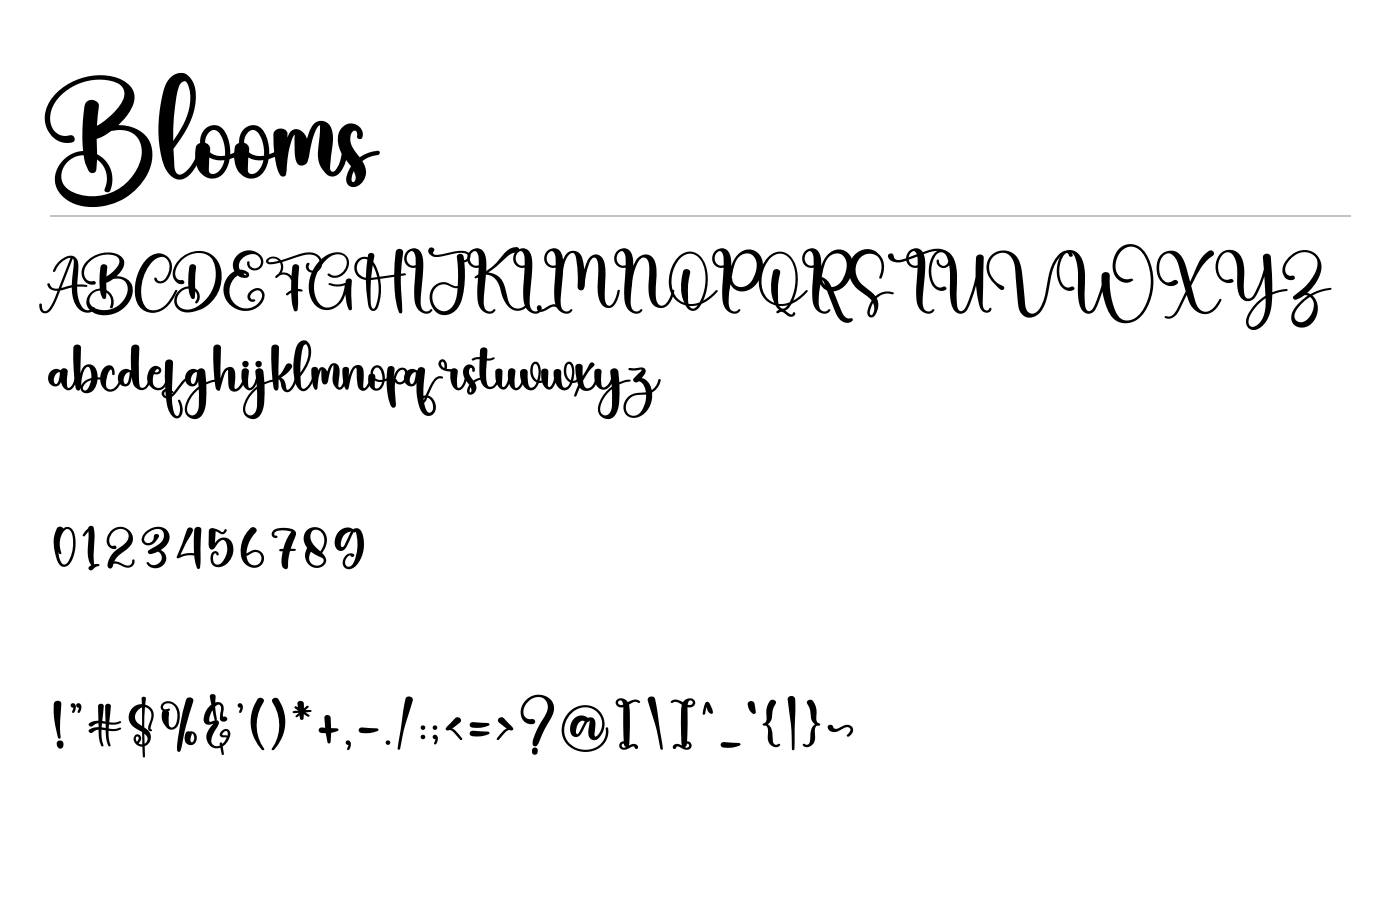 Blooms
ABCDEFGHIJKLMNOPQRSTUVWXYZ
abcdefghijklmnopqrstuvwxyz
0123456789
!"#$%&'()*+,-./:;<=>?@[\]^_`{|}~